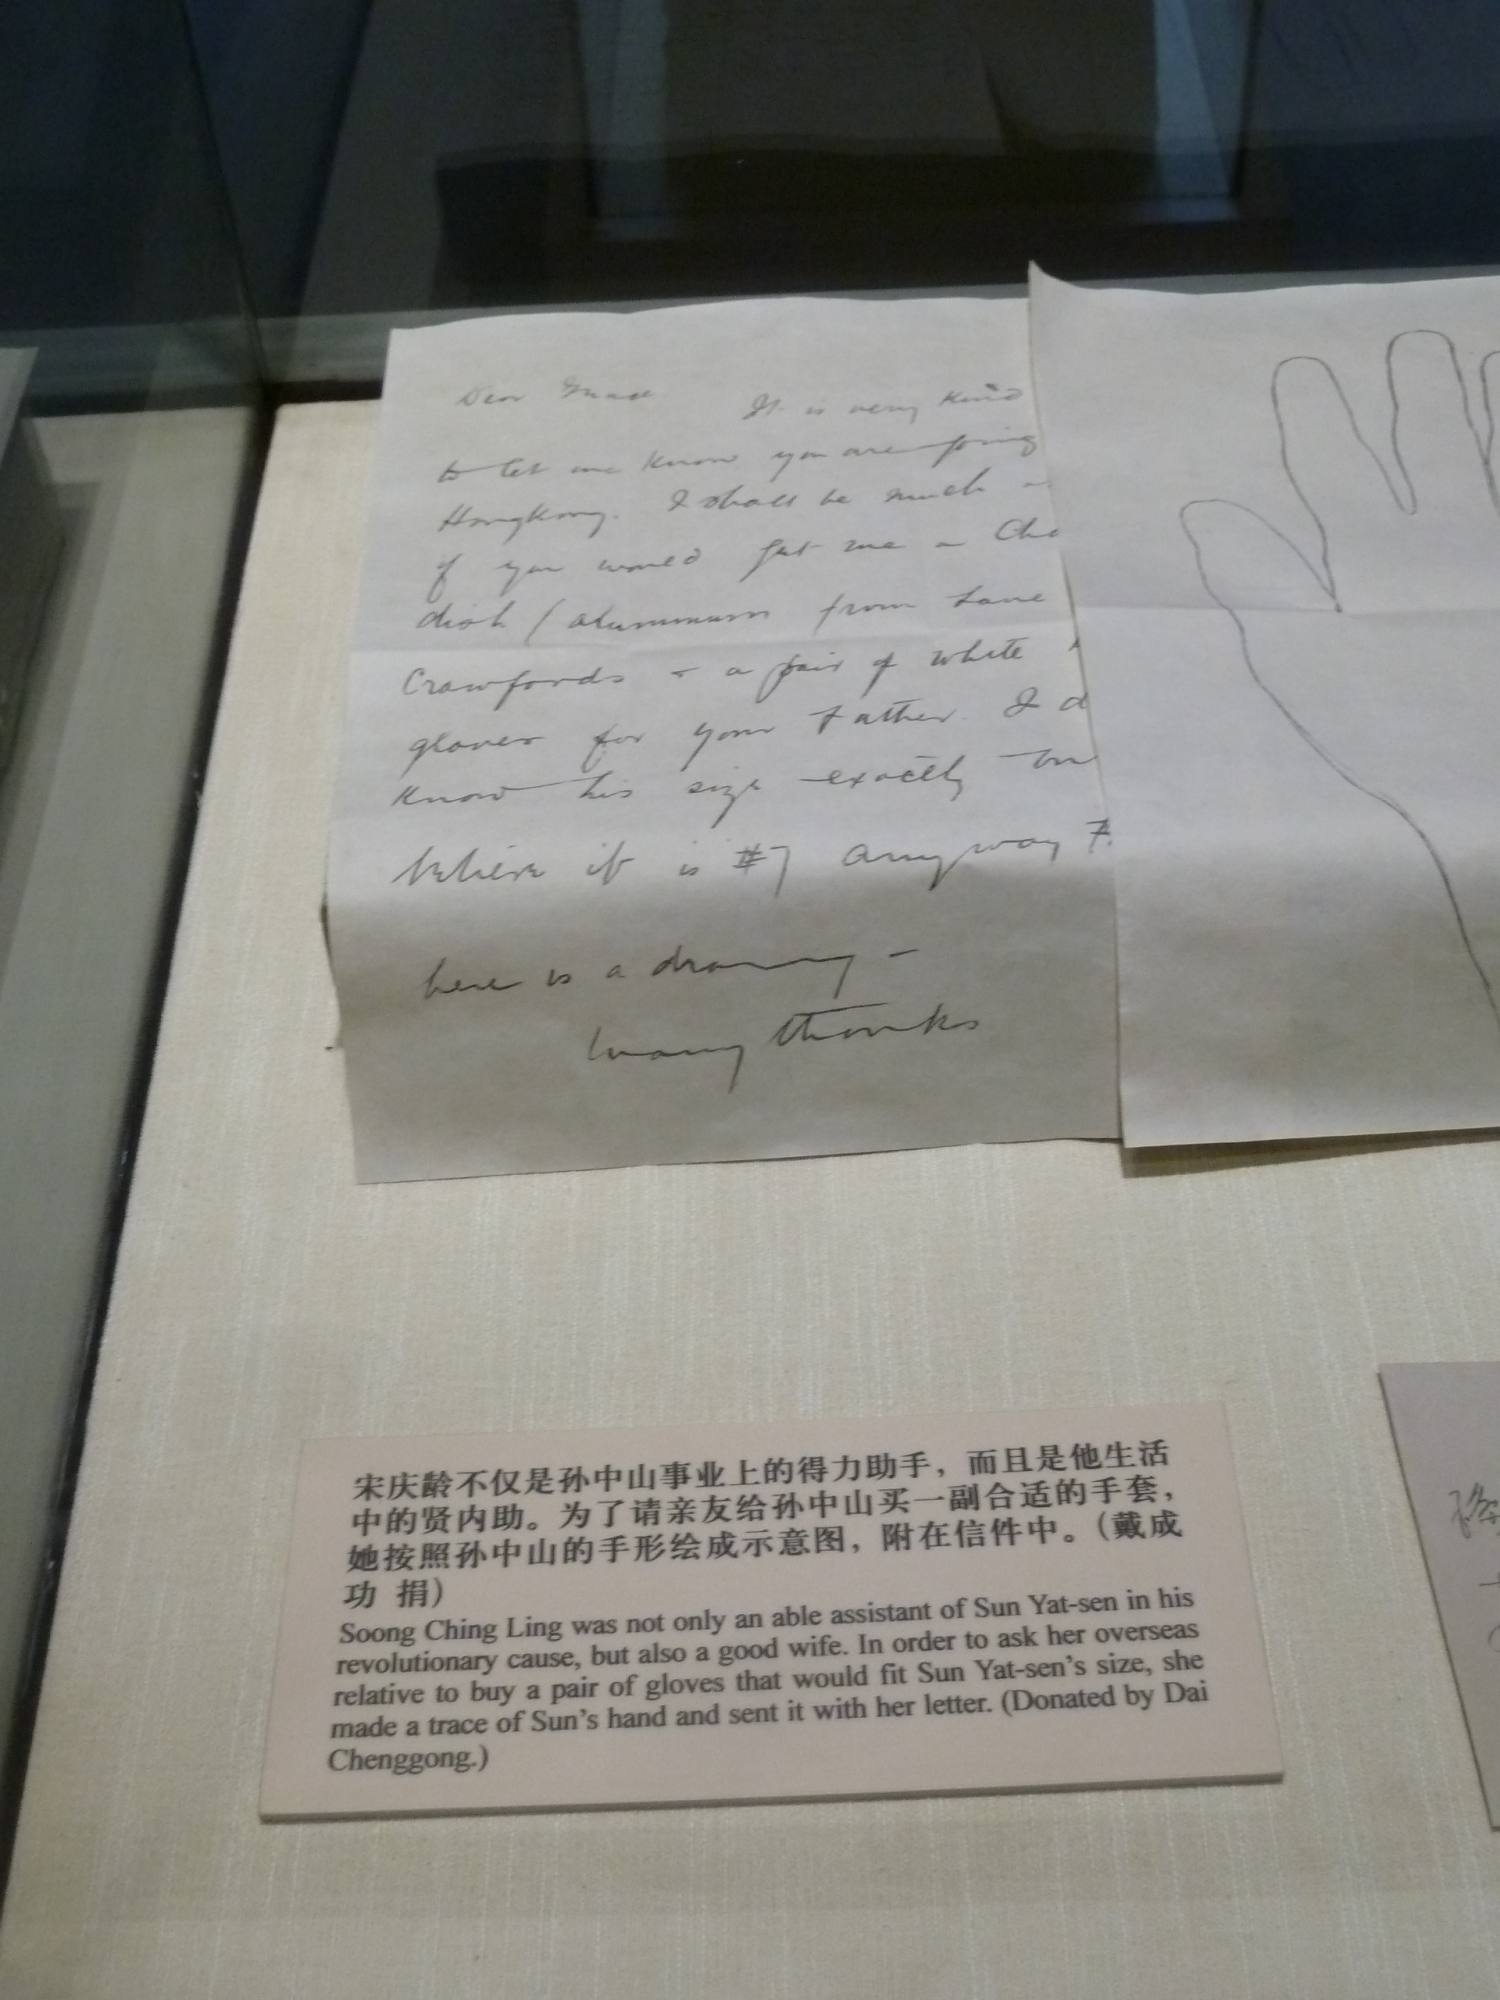 Dear Grace It is very kind
to let me know you are going
Hongkong. I shall be much
if you would get me a
dish (aluminum from Lane
Crawfords & a pair of white
gloves for your Father. I
know his size exactly
believe it is #7 anyway
here is a drawing -
many thanks
宋庆龄不仅是孙中山事业上的得力助手，而且是他生活
中的贤内助。为了请亲友给孙中山买一副合适的手套，
她按照孙中山的手形绘成示意图，附在信件中。（戴成
功 捐）
Soong Ching Ling was not only an able assistant of Sun Yat-sen in his
revolutionary cause, but also a good wife. In order to ask her overseas
relative to buy a pair of gloves that would fit Sun Yat-sen's size, she
made a trace of Sun's hand and sent it with her letter. (Donated by Dai
Chenggong.)